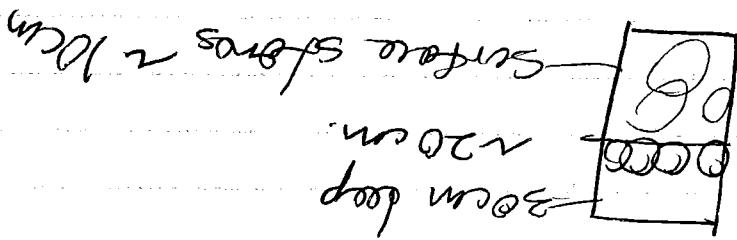 30cm deep
~20cm.
Surface stones ~10cm